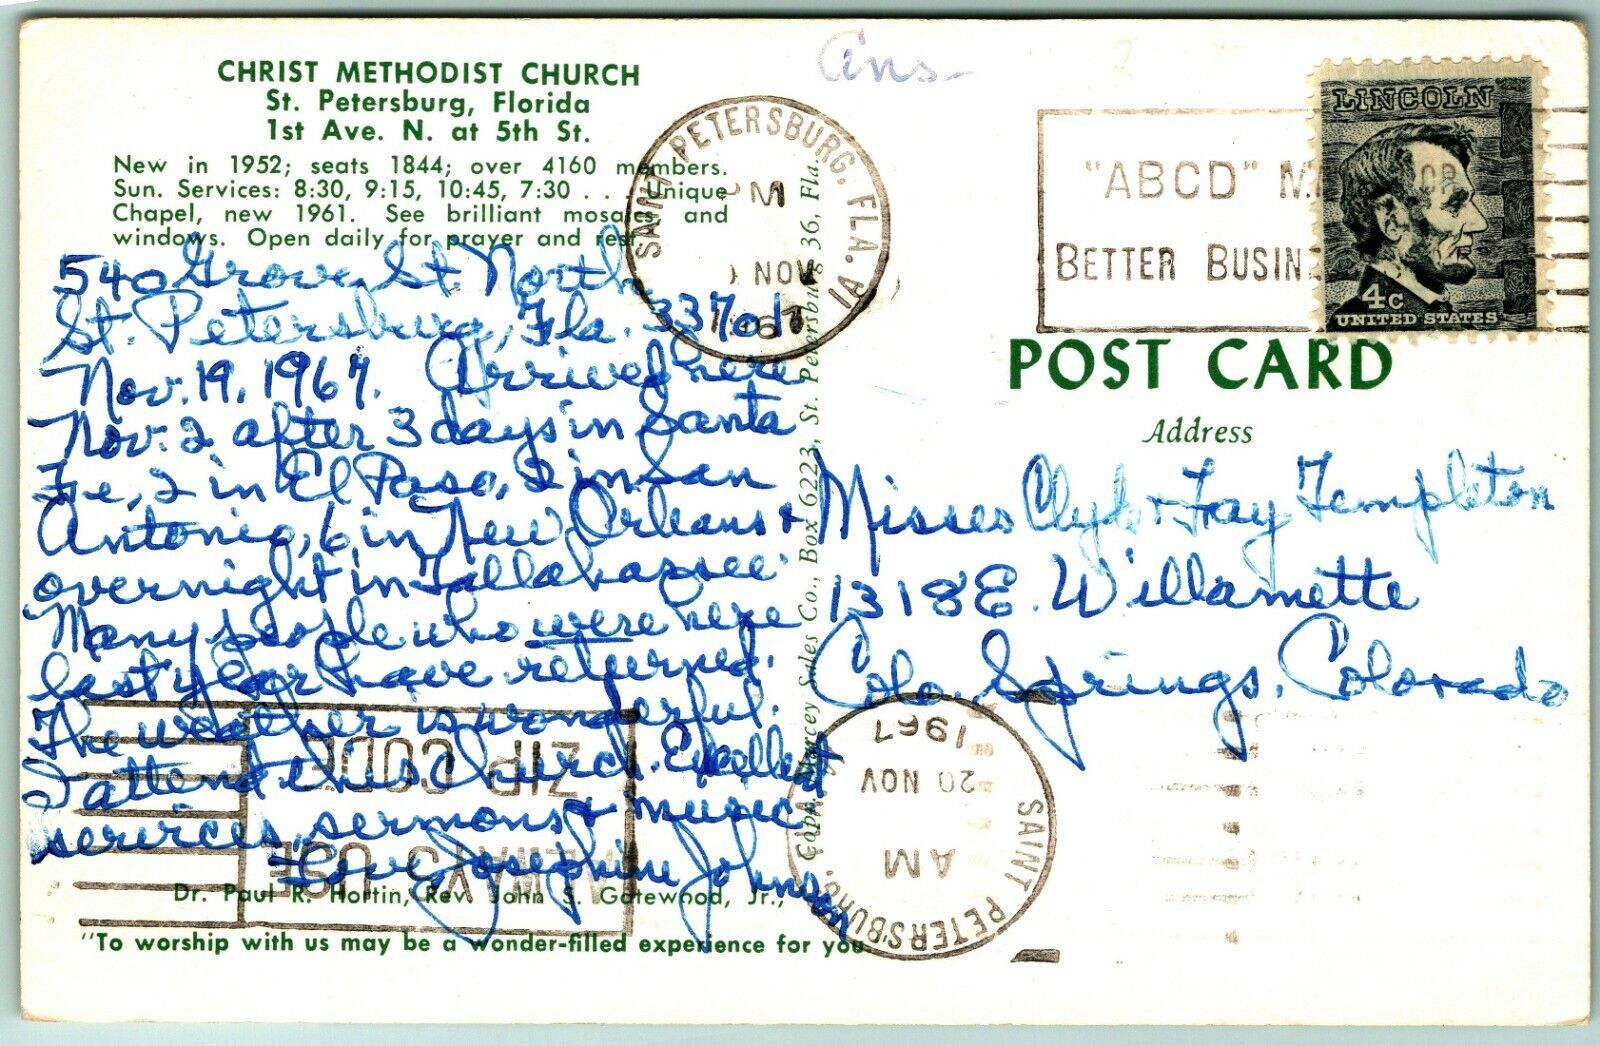 CHRIST METHODIST CHURCH
St. Petersburg, Florida
1st Ave. N. at 5th St.
New in 1952; seats 1844; over 4160 members.
Sun. Services: 8:30, 9:15, 10:45, 7:30 . . . Unique
Chapel, new 1961. See brilliant mosaics and
windows. Open daily for prayer and rest.
540 Grove St. North
St. Petersburg, Fla. 33701
Nov. 19, 1967. Arrived here
Nov. 2 after 3 days in Santa
Fe, 2 in El Paso, 2 in San
Antonio, 6 in New Orleans &
overnight in Tallahassee.
Many people who were here
last year have returned.
The weather is wonderful.
I attend this church. Excellent
services, sermons & music
Love, Josephine Johnson
Dr. Paul R. Hortin, Rev. John S. Gatewood, Jr.,
"To worship with us may be a wonder-filled experience for you."
ZIP CODE
ALWAYS USE
Ans-
SAINT PETERSBURG, FLA.
M
NOV
1967
"ABCD"
BETTER BUSIN
LINCOLN
4c
UNITED STATES
POST CARD
Address
Misses Clyde & Fay Templeton
1318 E. Willamette
Colo. Springs, Colorado
Sales Co., Box 6223, St. Petersburg 36, Fla.
SAINT PETERSBURG,
AM
20 NOV
1967